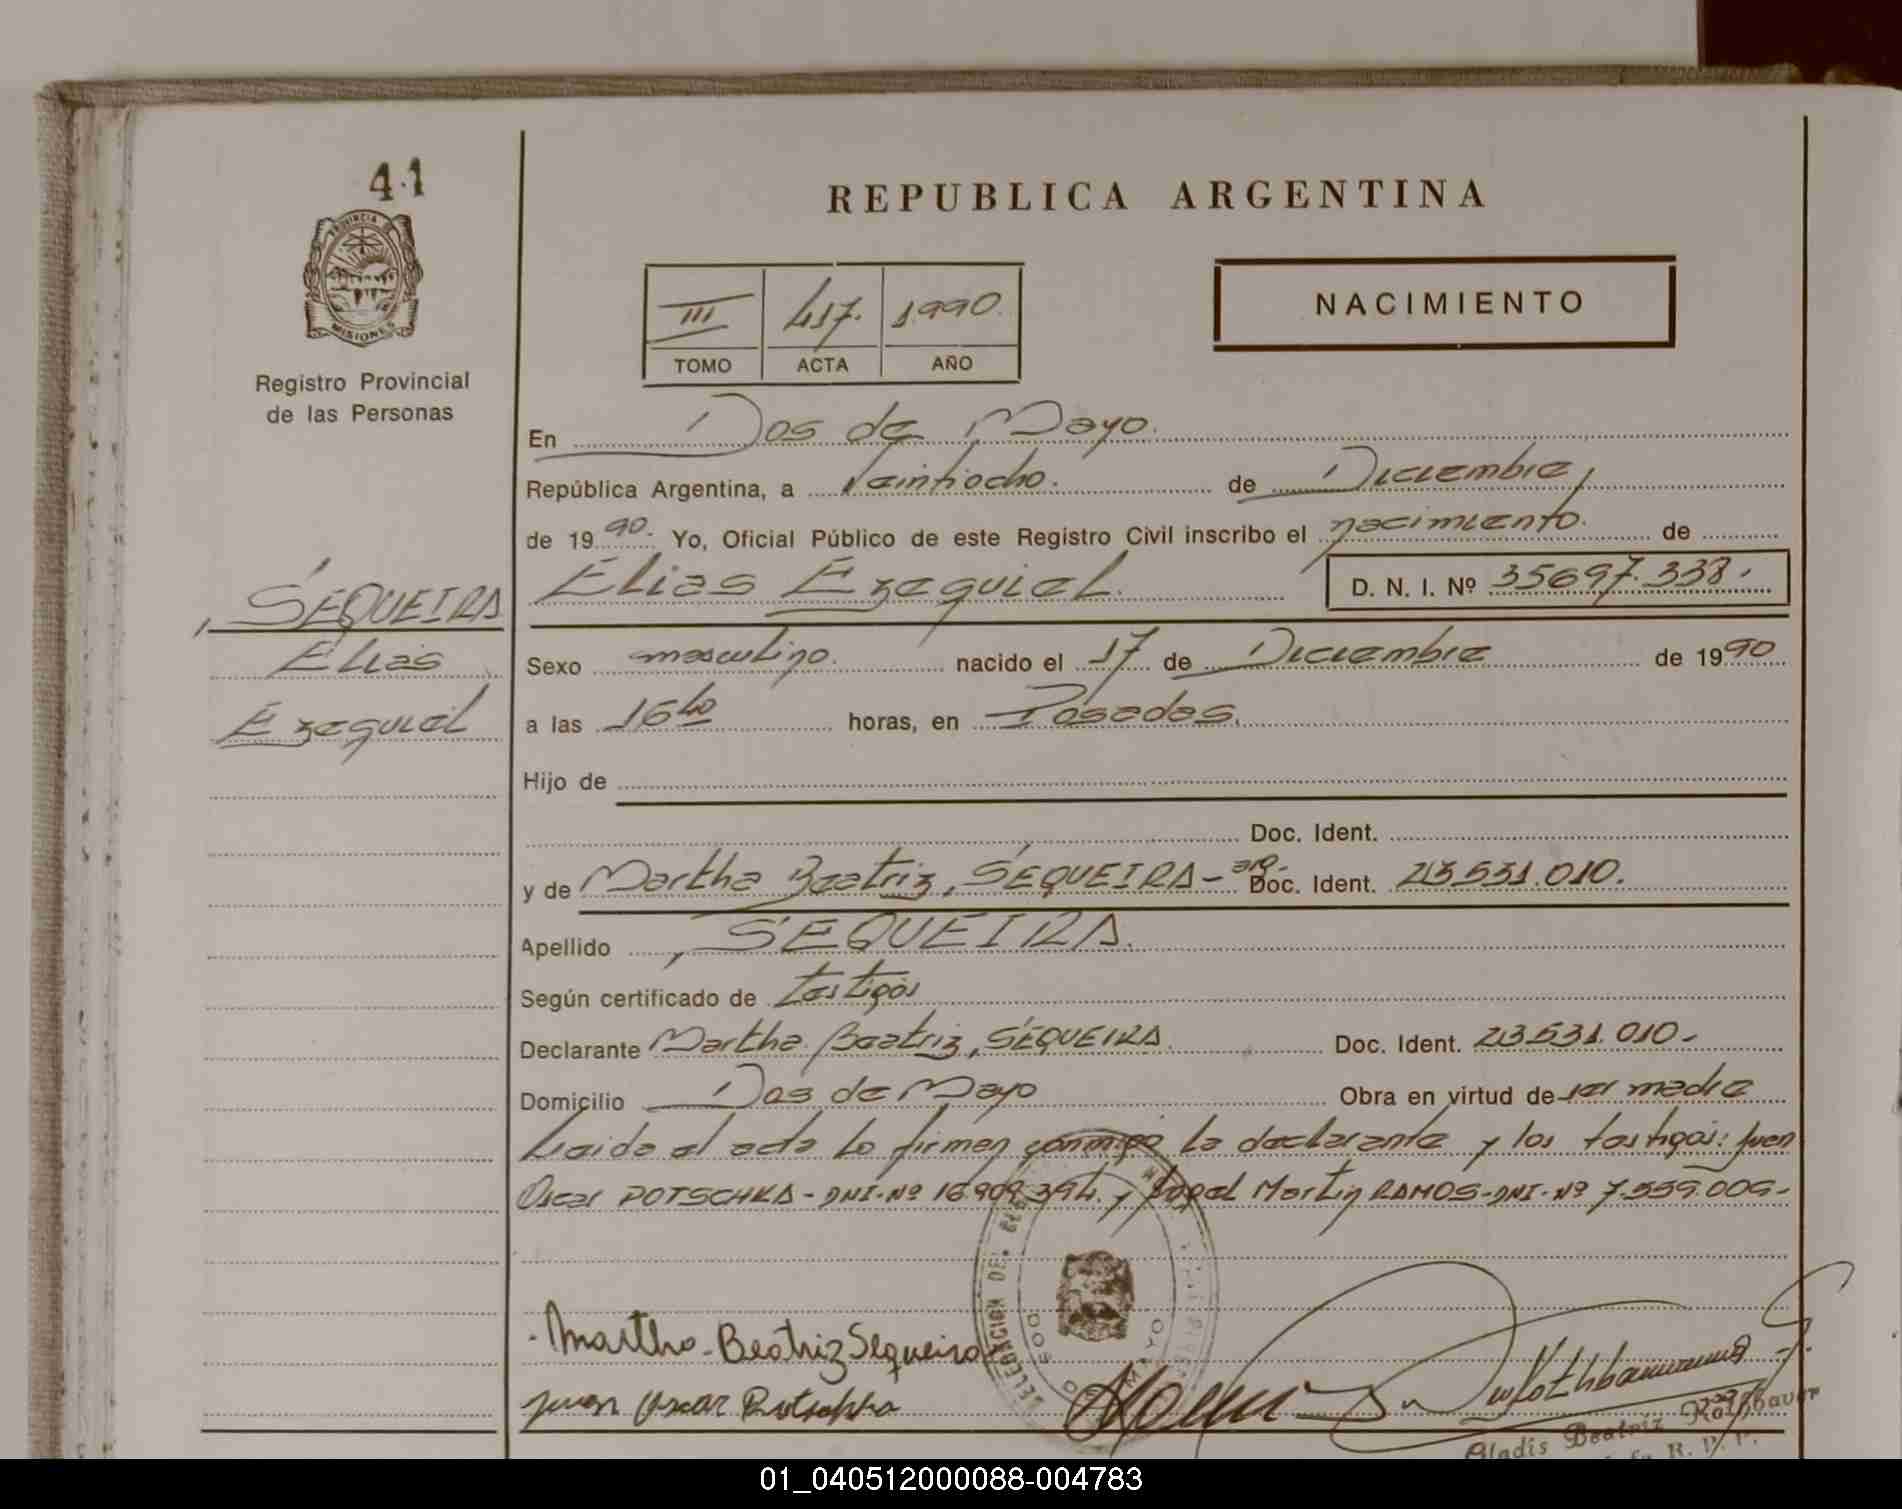 41
PROVINCIA DE
MISIONES
Registro Provincial
de las Personas
SEQUEIRA
Elias
Ezequiel
REPUBLICA ARGENTINA
III 417. 1990.
TOMO ACTA AÑO
NACIMIENTO
En Dos de Mayo.
República Argentina, a Veintiocho. de Diciembre,
de 1990. Yo, Oficial Público de este Registro Civil inscribo el nacimiento. de
Elias Ezequiel. D. N. I. Nº 35697.338.
Sexo masculino. nacido el 17 de Diciembre de 1990
a las 16 horas, en Posadas.
Hijo de
Doc. Ident.
y de Martha Beatriz, SEQUEIRA - arg. Doc. Ident. 23.531.010.
Apellido SEQUEIRA.
Según certificado de testigos
Declarante Martha Beatriz, SEQUEIRA. Doc. Ident. 23.531.010.-
Domicilio Dos de Mayo Obra en virtud de ser madre
Leida el acta lo firman conmigo la declarante y los testigos: Juan
Oscar POTSCHKA - DNI. Nº 16.909.394. y Martin RAMOS - DNI. Nº 7.559.005-
DELEGACION DEL
DOS DE MAYO
Martha Beatriz Sequeira
Juan Oscar Potschka
Gladis Beatriz Rothbauer
R. P. P.
01_040512000088-004783